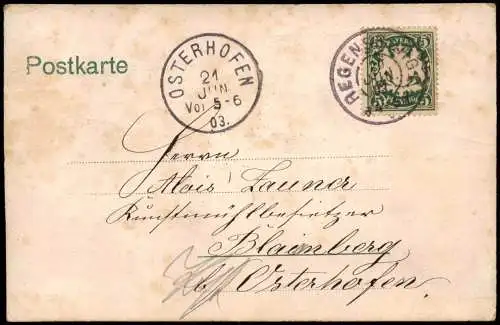 Postkarte
OSTERHOFEN
21
JUN.
Vor 5-6
03.
REGENSBURG
5 5
Herrn
Alois Launer
Kunstmühlbesitzer
Blaimberg
b/ Osterhofen.